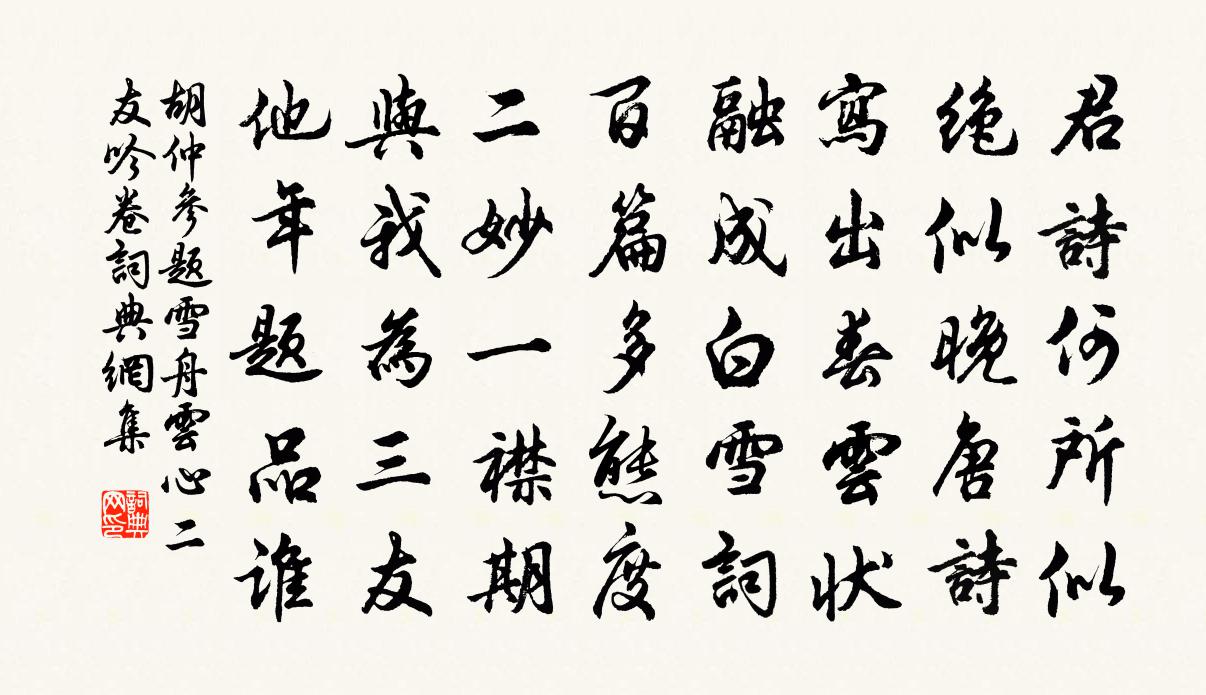 君詩何所似
絶似晚唐詩
寫出春雲狀
融成白雪詞
百篇多態度
二妙一襟期
與我為三友
他年題品誰
胡仲參题雪舟雲心二
友吟卷詞典網集
詞典网印